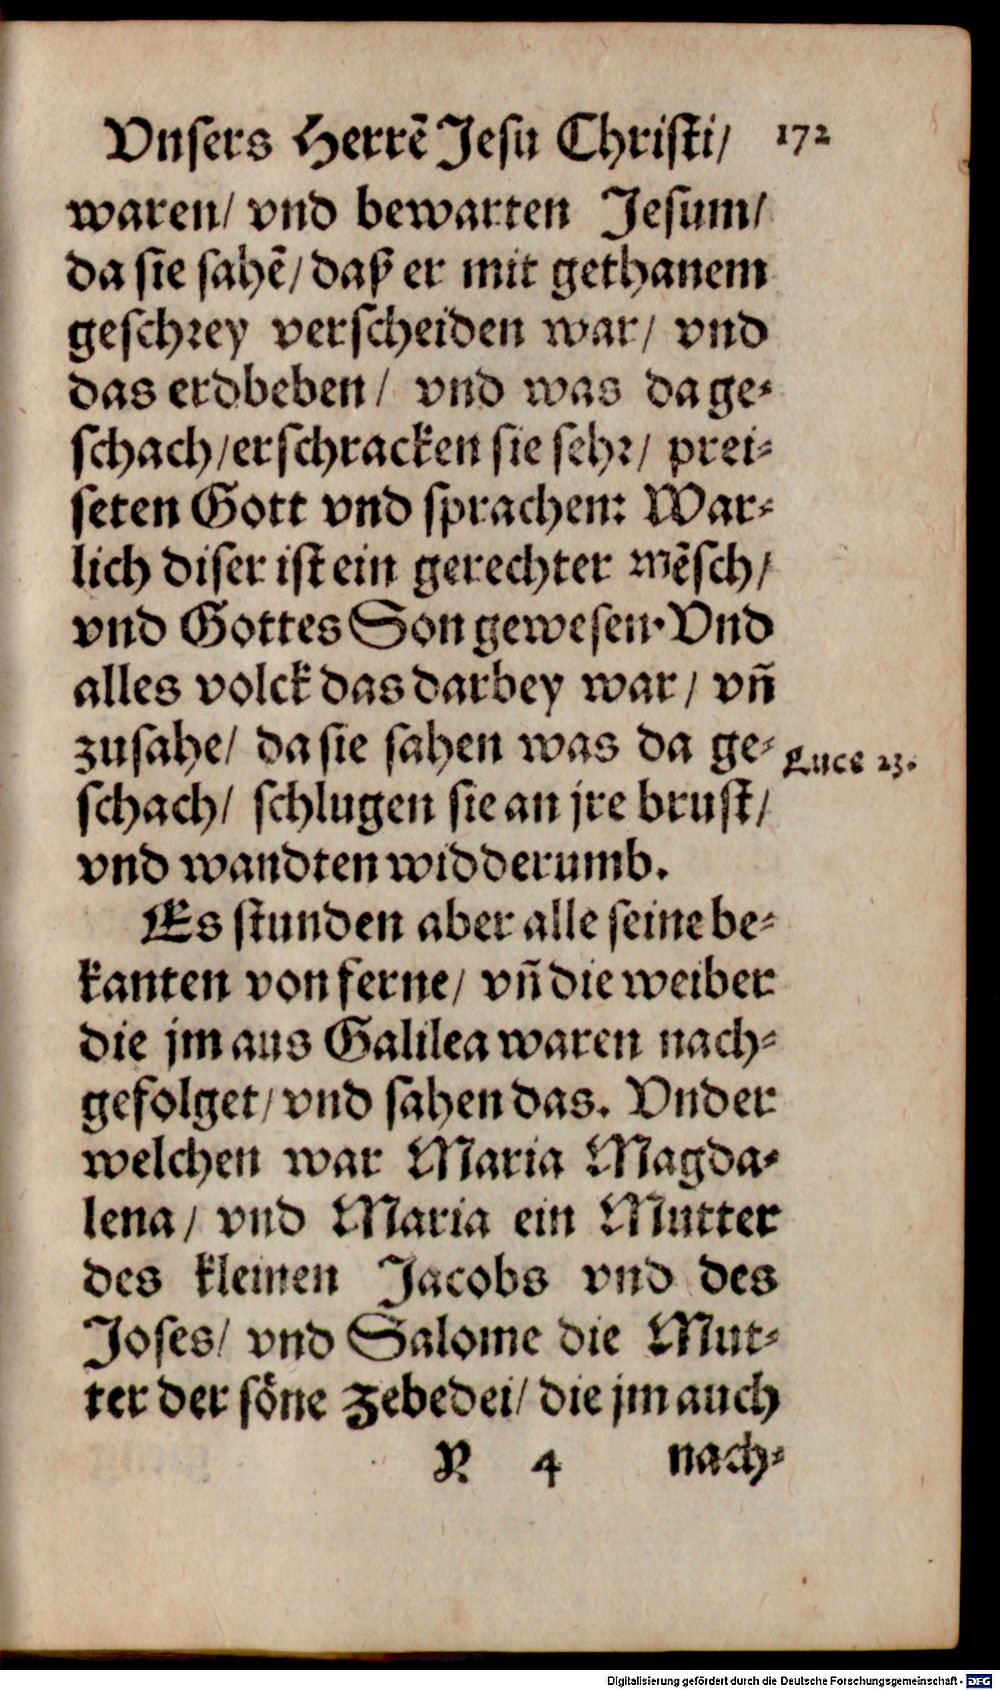 Vnsers Herrẽ Jesu Christi/ 172
waren/ vnd bewarten Jesum/
da sie sahẽ/ daß er mit gethanem
geschrey verscheiden war/ vnd
das erdbeben/ vnd was da ge-
schach/ erschracken sie sehr/ prei-
seten Gott vnd sprachen: War-
lich diser ist ein gerechter mẽsch/
vnd Gottes Son gewesen. Vnd
alles volck das darbey war/ vñ
zusahe/ da sie sahen was da ge-
Luce 23.
schach/ schlugen sie an jre brust/
vnd wandten widderumb.
Es stunden aber alle seine be-
kanten von ferne/ vñ die weiber
die jm aus Galilea waren nach-
gefolget/ vnd sahen das. Vnder
welchen war Maria Magda-
lena/ vnd Maria ein Mutter
des kleinen Jacobs vnd des
Joses/ vnd Salome die Mut-
ter der söne Zebedei/ die jm auch
R 4 nach-
Digitalisierung gefördert durch die Deutsche Forschungsgemeinschaft - DFG